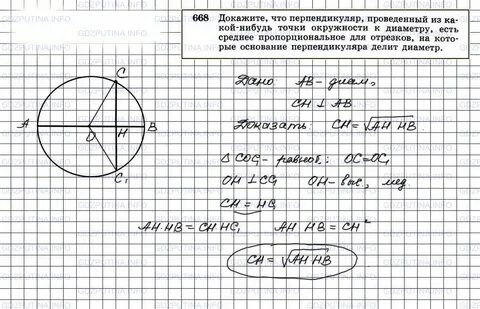 668 Докажите, что перпендикуляр, проведенный из ка-
кой-нибудь точки окружности к диаметру, есть
среднее пропорциональное для отрезков, на кото-
рые основание перпендикуляра делит диаметр.
Дано: AB - диам,
CH ⊥ AB
Доказать: CH = √AH·HB
△COC₁ - равноб.; OC = OC₁
OH ⊥ CC₁ OH - выс, мед.
CH = HC₁
AH·HB = CH·HC₁ AH·HB = CH²
CH = √AH·HB
C
A
O
H
B
C₁
GDZPUTINA.INFO